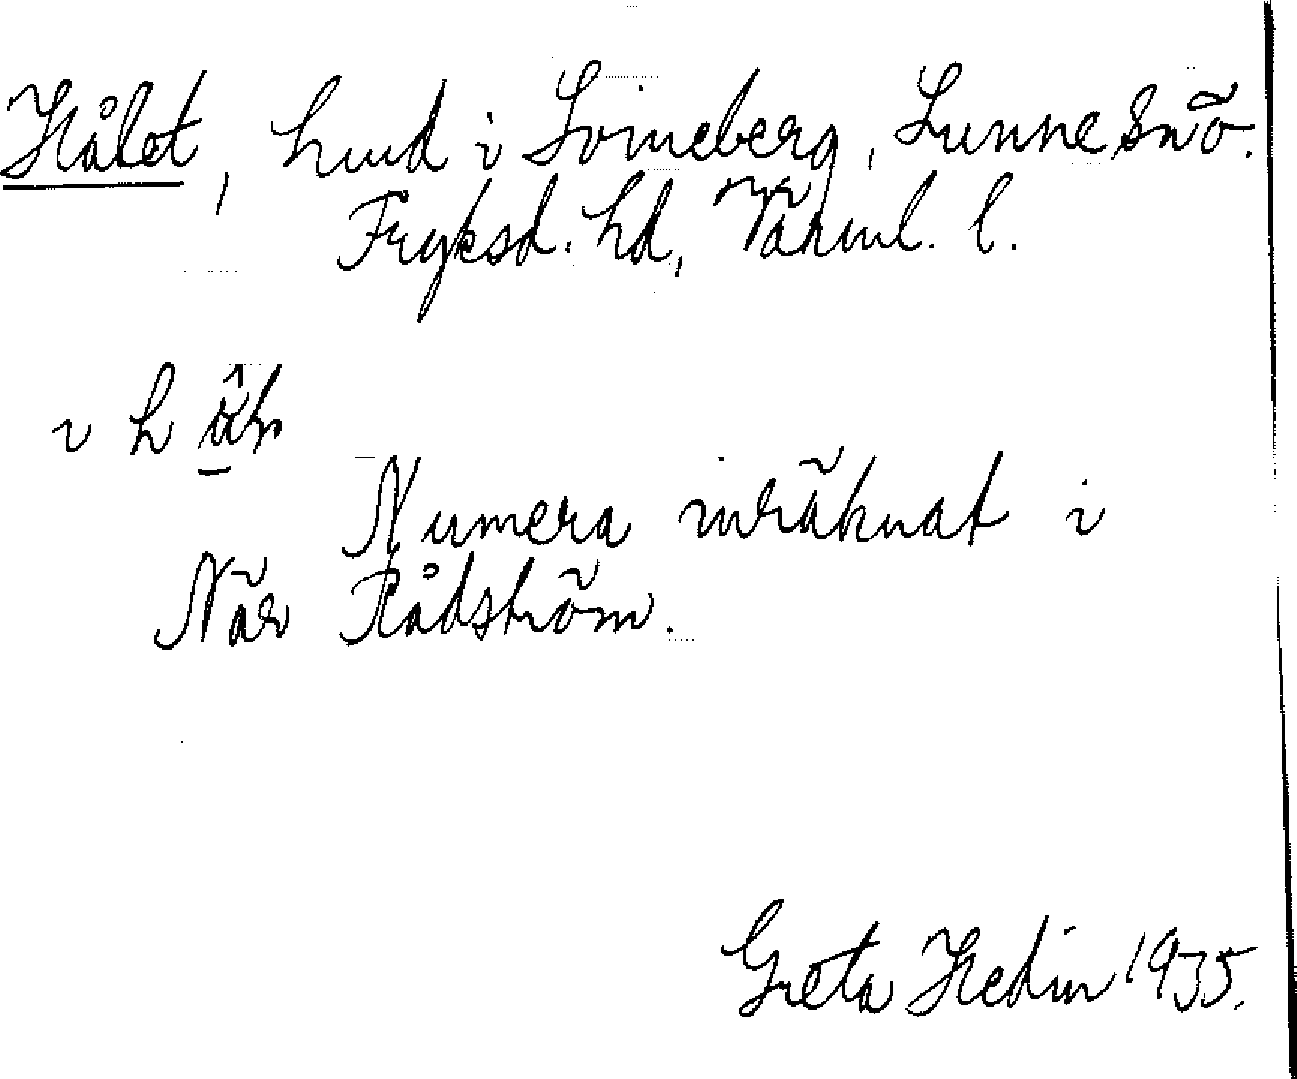 Hålet, hmd i Soineberg, Sunne snö.
Fryksd. hd, Värml. l.
i h
Numera inräknat i
När Rådström.
Greta Hedin 1935.